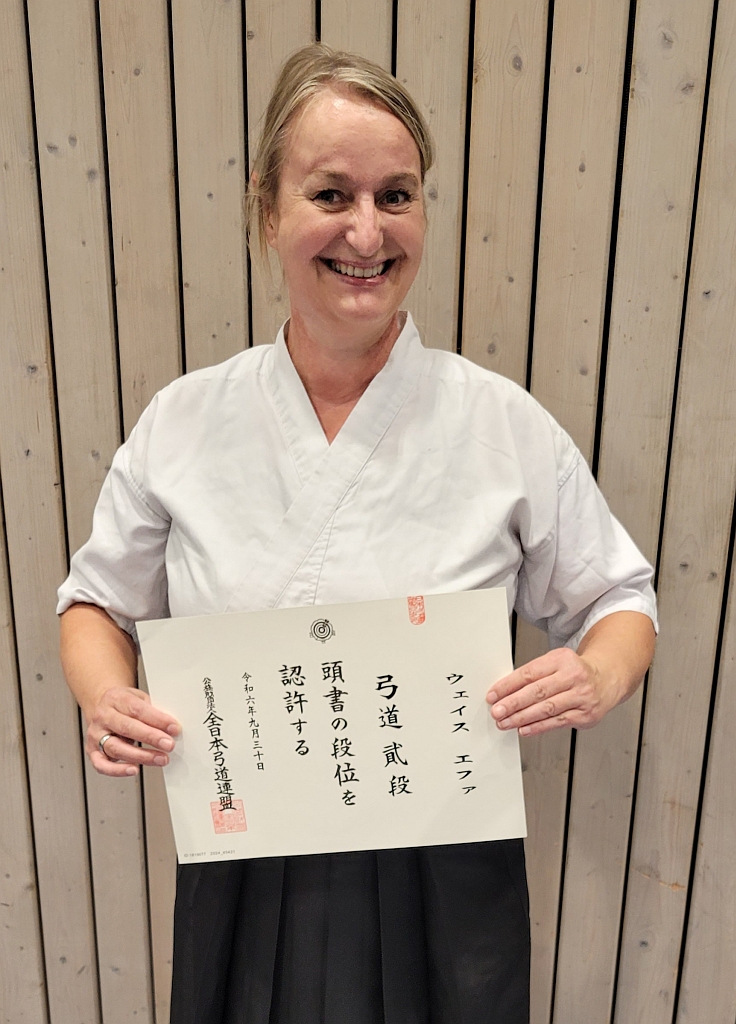 ウェイス エファ
弓道 貳段
頭書の段位を
認許する
令和六年九月三十日
公益財団法人全日本弓道連盟